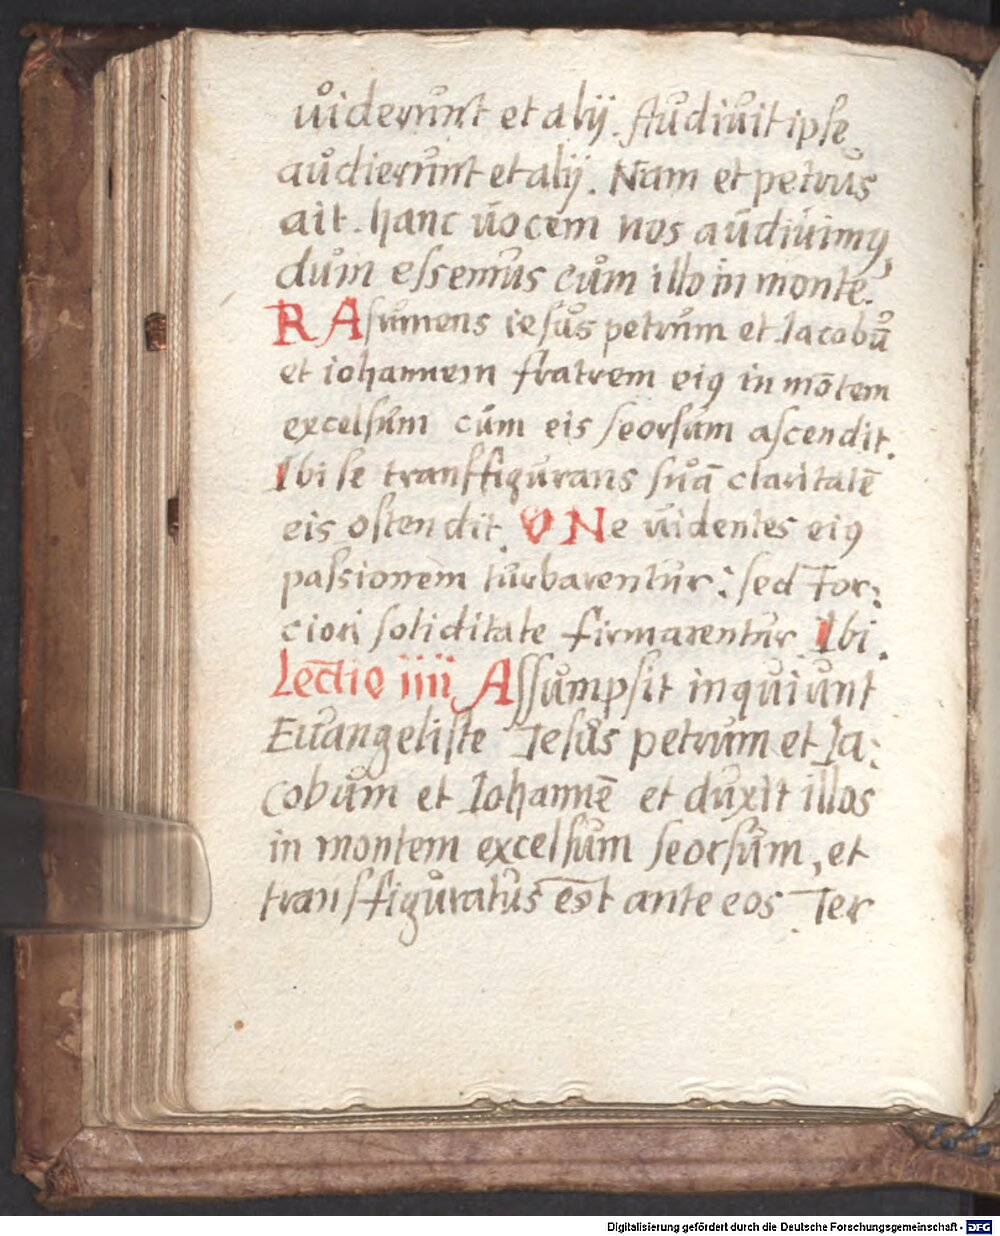 uiderunt et alij. Audiuit ipse
audierunt et alij. Nam et petrus
ait. hanc uocem nos audiuimꝯ,
dum essemus cum illo in monte.
R Asumens iesus petrum et Iacobū
et iohannem fratrem eiꝯ in mōtem
excelsum cum eis seorsum ascendit.
Ibi se transfigurans suā claritatē
eis ostendit. V Ne uidentes eiꝯ
passionem turbarentur: sed For:
ciori soliditate firmarentur Ibi.
Lectio iiii Assumpsit inquiunt
Euangeliste Iesus petrum et Ia:
cobum et Iohannē et duxit illos
in montem excelsum seorsum, et
transfiguratus est ante eos Ter
Digitalisierung gefördert durch die Deutsche Forschungsgemeinschaft - DFG